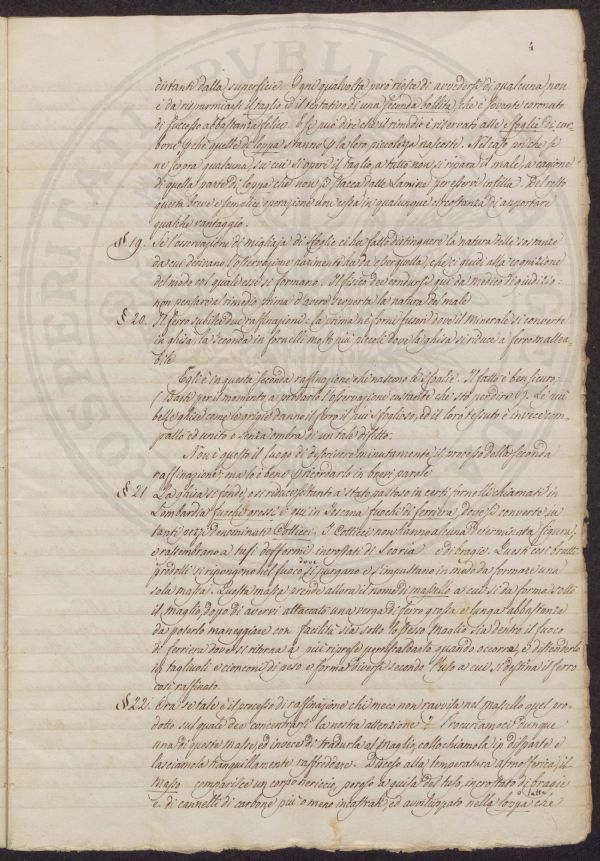 4
distanti dalla superficie. Ogni qualvolta però riesca di avvedersi di qualcuna, non
è da risparmiarsi il taglio e il tentativo di una seconda bollita, che è sovente coronato
di successo abbastanza felice e si può dire che il rimedio è riservato alle sfoglie di car-
bone, che quelle di loppa stanno per la loro piccolezza nascoste. Nel caso poi che se
ne scopra qualcuna, su cui si operi il taglio, a tutto non si ripara il male, a cagione
di quella parte di loppa che non si stacca dalle lamine per esservi infitta. Del resto
questa breve e semplice operazione non cessa in qualunque circostanza di apportare
qualche vantaggio.
§ 19. Se l'osservazione di migliaja di sfoglie ci ha fatto distinguere la natura delle sostanze
da cui derivano, l'osservazione parimenti ha da esser quella, che ci guidi alla cognizione
del modo col quale esse si formano. Il fisico dee condursi qui da medico di giudizio:
non pensare al rimedio prima d'avere scoverta la natura del male
§ 20. Il ferro subisce due raffinazioni: la prima ne' forni fusori dove il minerale si converte
in ghisa, la seconda in fornelli molto più piccoli dove la ghisa si riduce a ferro mallea-
bile
Egli è in questa seconda raffinazione che nascono le sfoglie. Il fatto è ben sicuro:
(Basti per il momento a provarlo l'osservazione costante che sto per dire). Le più
belle ghise come le grigie danno il ferro il più sfoglioso, ed il loro tessuto è invece com-
patto ed unito e senza ombra di un tale difetto.
Non è questo il luogo di descrivere minutamente il processo della seconda
raffinazione; ma lo è bene per ricordarlo in brevi parole
§ 21 La ghisa si fonde, e si riduce pertanto a stato pastoso in certi fornelli chiamati in
Lombardia fuochi grossi e qui in Toscana fuochi di ferriera, dove si converte in
tanti pezzi denominati Cotticci. I Cotticci non hanno alcuna determinata figura,
e rassembrano a tufi dafformi incrostati di Scoria e di bragie. Questi così brutti
prodotti si ripongono nel fuoco, dove si purgano e s'impastano in modo da formare una
sola massa. Questa massa prende allora il nome di massello, a cui si dà forma sotto
il maglio, dopo di avervi attaccato una verga di ferro grossa e lunga abbastanza
da poterlo maneggiare con facilità sia sotto lo stesso maglio sia dentro il fuoco
di ferriera dove si ritorna a più riprese per riscaldarlo quando occorra, e distenderlo
in tagliuoli e cionconi di peso e forma diversi secondo l'uso a cui si destina il ferro
così raffinato.
§ 22. Ora se tale è il processo di raffinazione chi meco non ravvisa nel massello quel pro-
dotto sul quale dee concentrarsi la nostra attenzione? Procuriamoci dunque
una di queste masse, ed invece di tradurla al maglio, collochiamola in disparte e
lasciamola tranquillamente raffreddare. Disceso alla temperatura atmosferica, il
masso comparisce un corpo nericcio, poroso a guisa del tufo, incrostato di bragie
e di cannelli di carbone più o meno incastrati, ed avviluppato nella loppa che